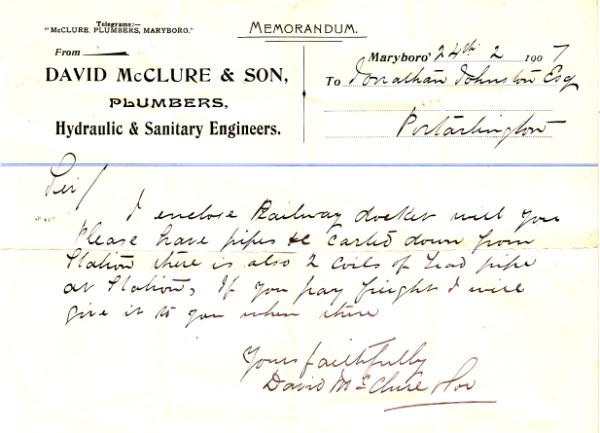 Telegrams:—
"McCLURE, PLUMBERS, MARYBORO."
MEMORANDUM.
From
DAVID McCLURE & SON,
PLUMBERS,
Hydraulic & Sanitary Engineers.
Maryboro' 24th 2 1907
To Jonathan Johnston Esq
Portarlington
Sir/
I enclose Railway docket will you
please have pipes &c carted down from
Station there is also 2 coils of Lead pipe
at Station, If you pay freight I will
give it to you when there
Yours faithfully
David McClure & Son